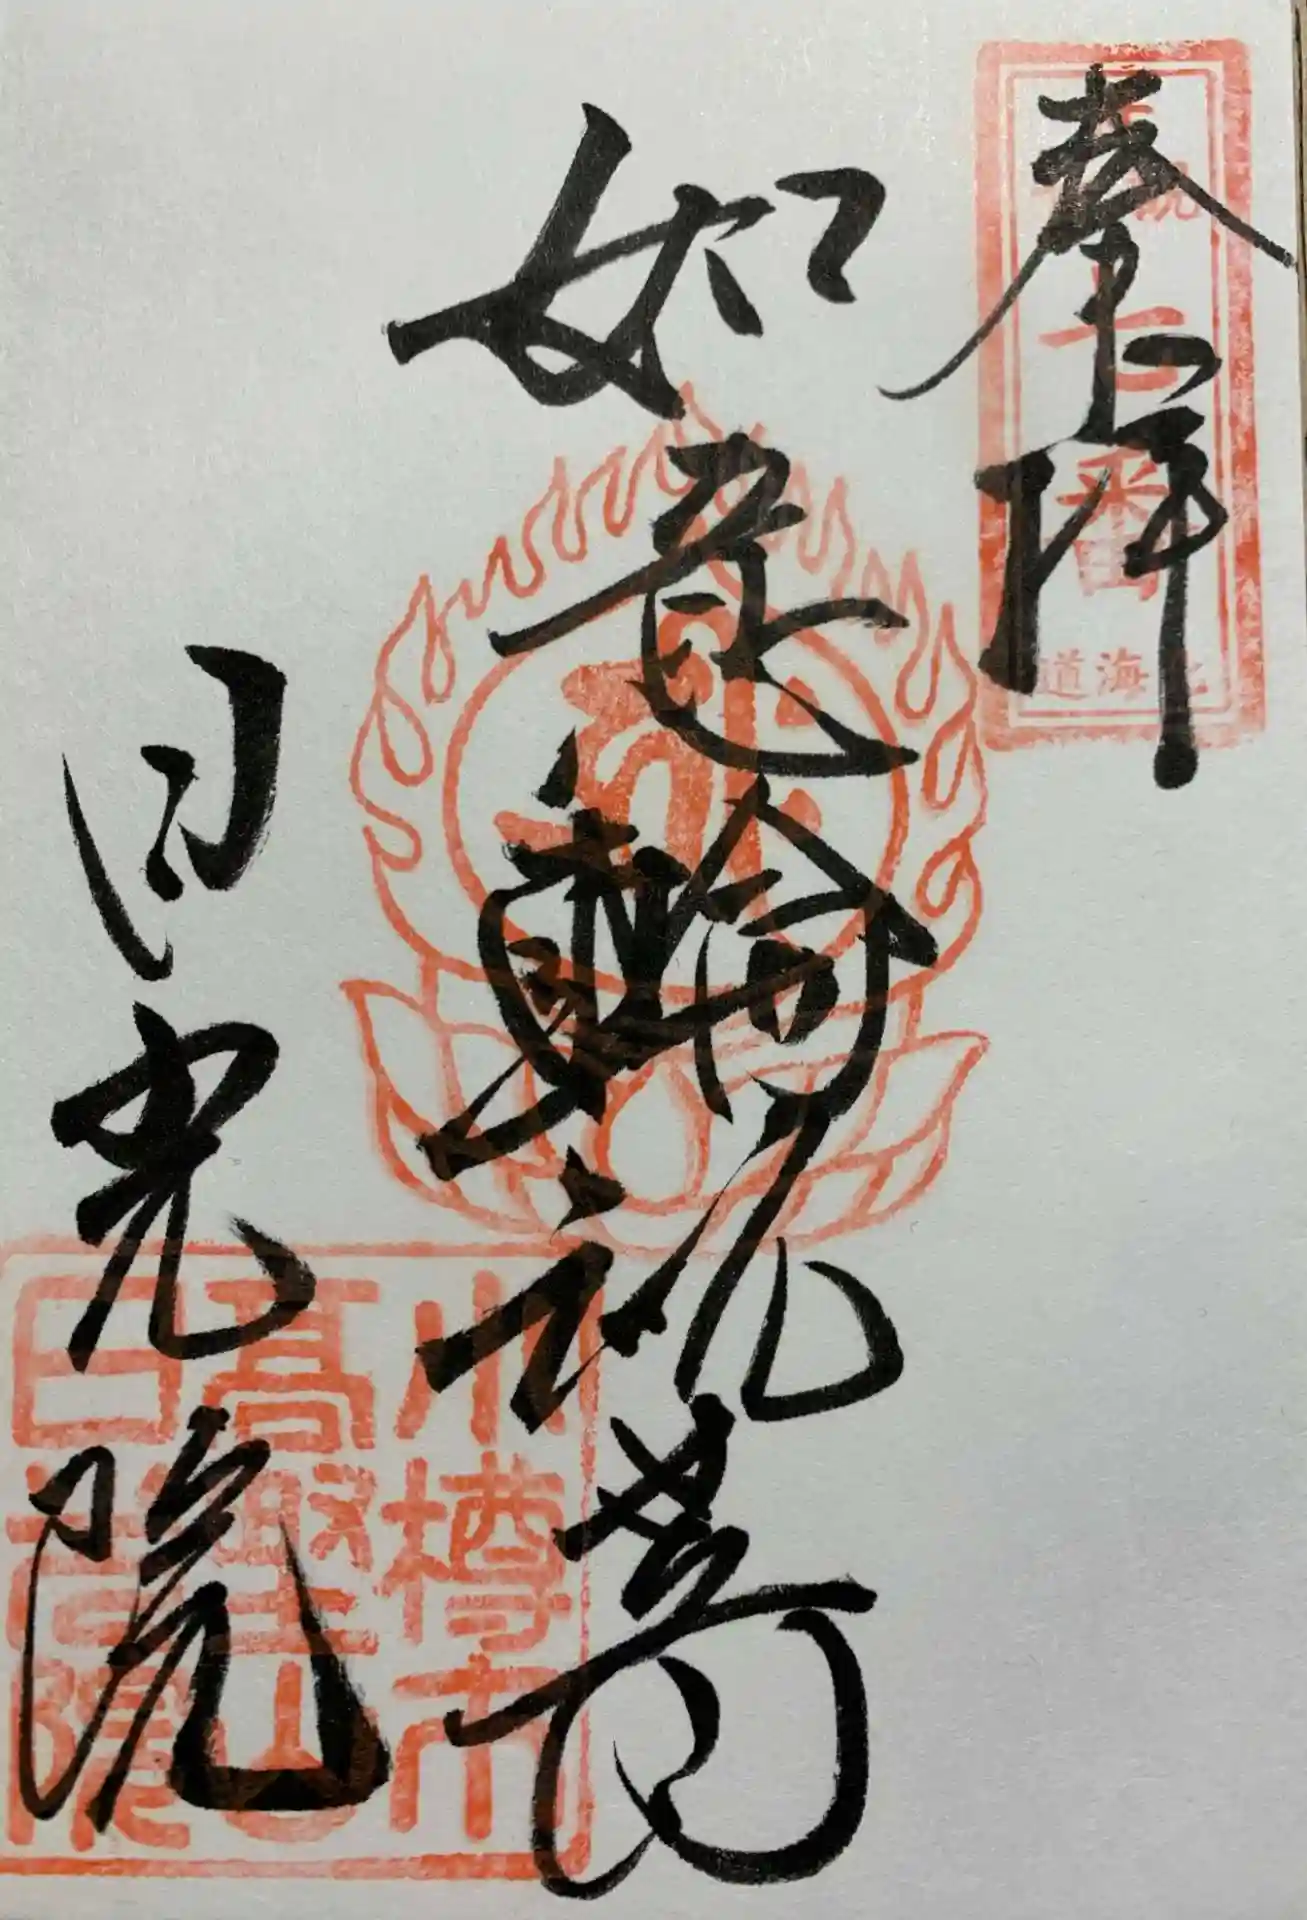 奉拝
七番
北海道
如意輪観世音
日光院
小樽市
高野山
日光院